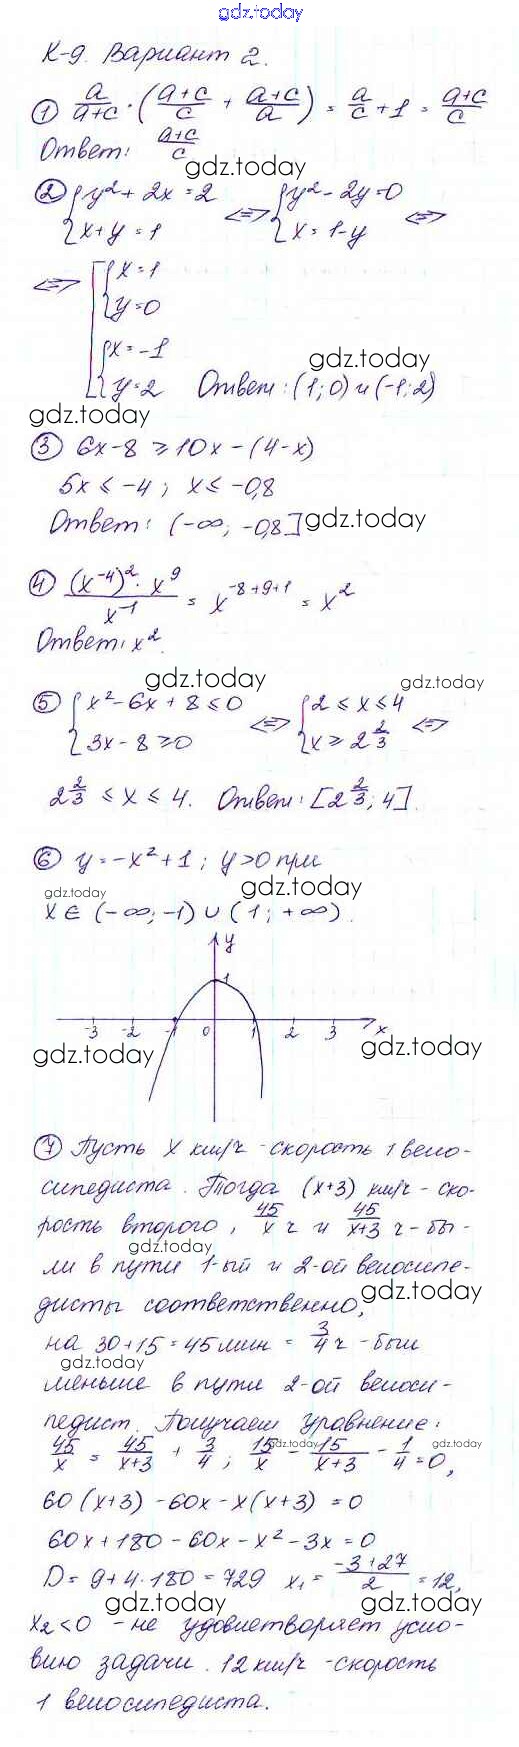 gdz.today
К-9. Вариант 2.
① a/(a+c) · ((a+c)/c + (a+c)/a) = a/c + 1 = (a+c)/c
Ответ: (a+c)/c
gdz.today
② { y² + 2x = 2 ⇔ { y² - 2y = 0 ⇔
{ x + y = 1 { x = 1-y
⇔ [ { x = 1
{ y = 0
{ x = -1
gdz.today
{ y = 2 Ответ: (1; 0) и (-1; 2)
gdz.today
③ 6x-8 ⩾ 10x - (4-x)
5x ⩽ -4; x ⩽ -0,8
Ответ: (-∞; -0,8]
gdz.today
④ ((x⁻⁴)² · x⁹)/x⁻¹ = x⁻⁸⁺⁹⁺¹ = x²
Ответ: x².
gdz.today gdz.today
⑤ { x² - 6x + 8 ⩽ 0 ⇔ { 2 ⩽ x ⩽ 4 ⇔
{ 3x - 8 ⩾ 0 { x ⩾ 2 2/3
2 2/3 ⩽ x ⩽ 4. Ответ: [2 2/3; 4].
gdz.today
⑥ y = -x² + 1; y > 0 при
gdz.today gdz.today
x ∈ (-∞; -1) ∪ (1; +∞).
y
1
-3 -2 -1 0 1 2 3 x
gdz.today gdz.today
⑦ Пусть x км/ч - скорость 1 вело-
сипедиста. Тогда (x+3) км/ч - ско-
рость второго, 45/x ч и 45/(x+3) ч - бы-
gdz.today
ли в пути 1-ый и 2-ой велосипе-
gdz.today
дисты соответственно,
на 30+15 = 45 мин = 3/4 ч - был
gdz.today
меньше в пути 2-ой велоси-
педист. Получаем уравнение:
45/x = 45/(x+3) + 3/4; 15/x - 15/(x+3) - 1/4 = 0,
gdz.today gdz.today
60(x+3) - 60x - x(x+3) = 0
60x + 180 - 60x - x² - 3x = 0
gdz.today
D = 9 + 4·180 = 729 x₁ = (-3+27)/2 = 12,
gdz.today gdz.today
x₂ < 0 - не удовлетворяет усло-
вию задачи. 12 км/ч - скорость
1 велосипедиста.